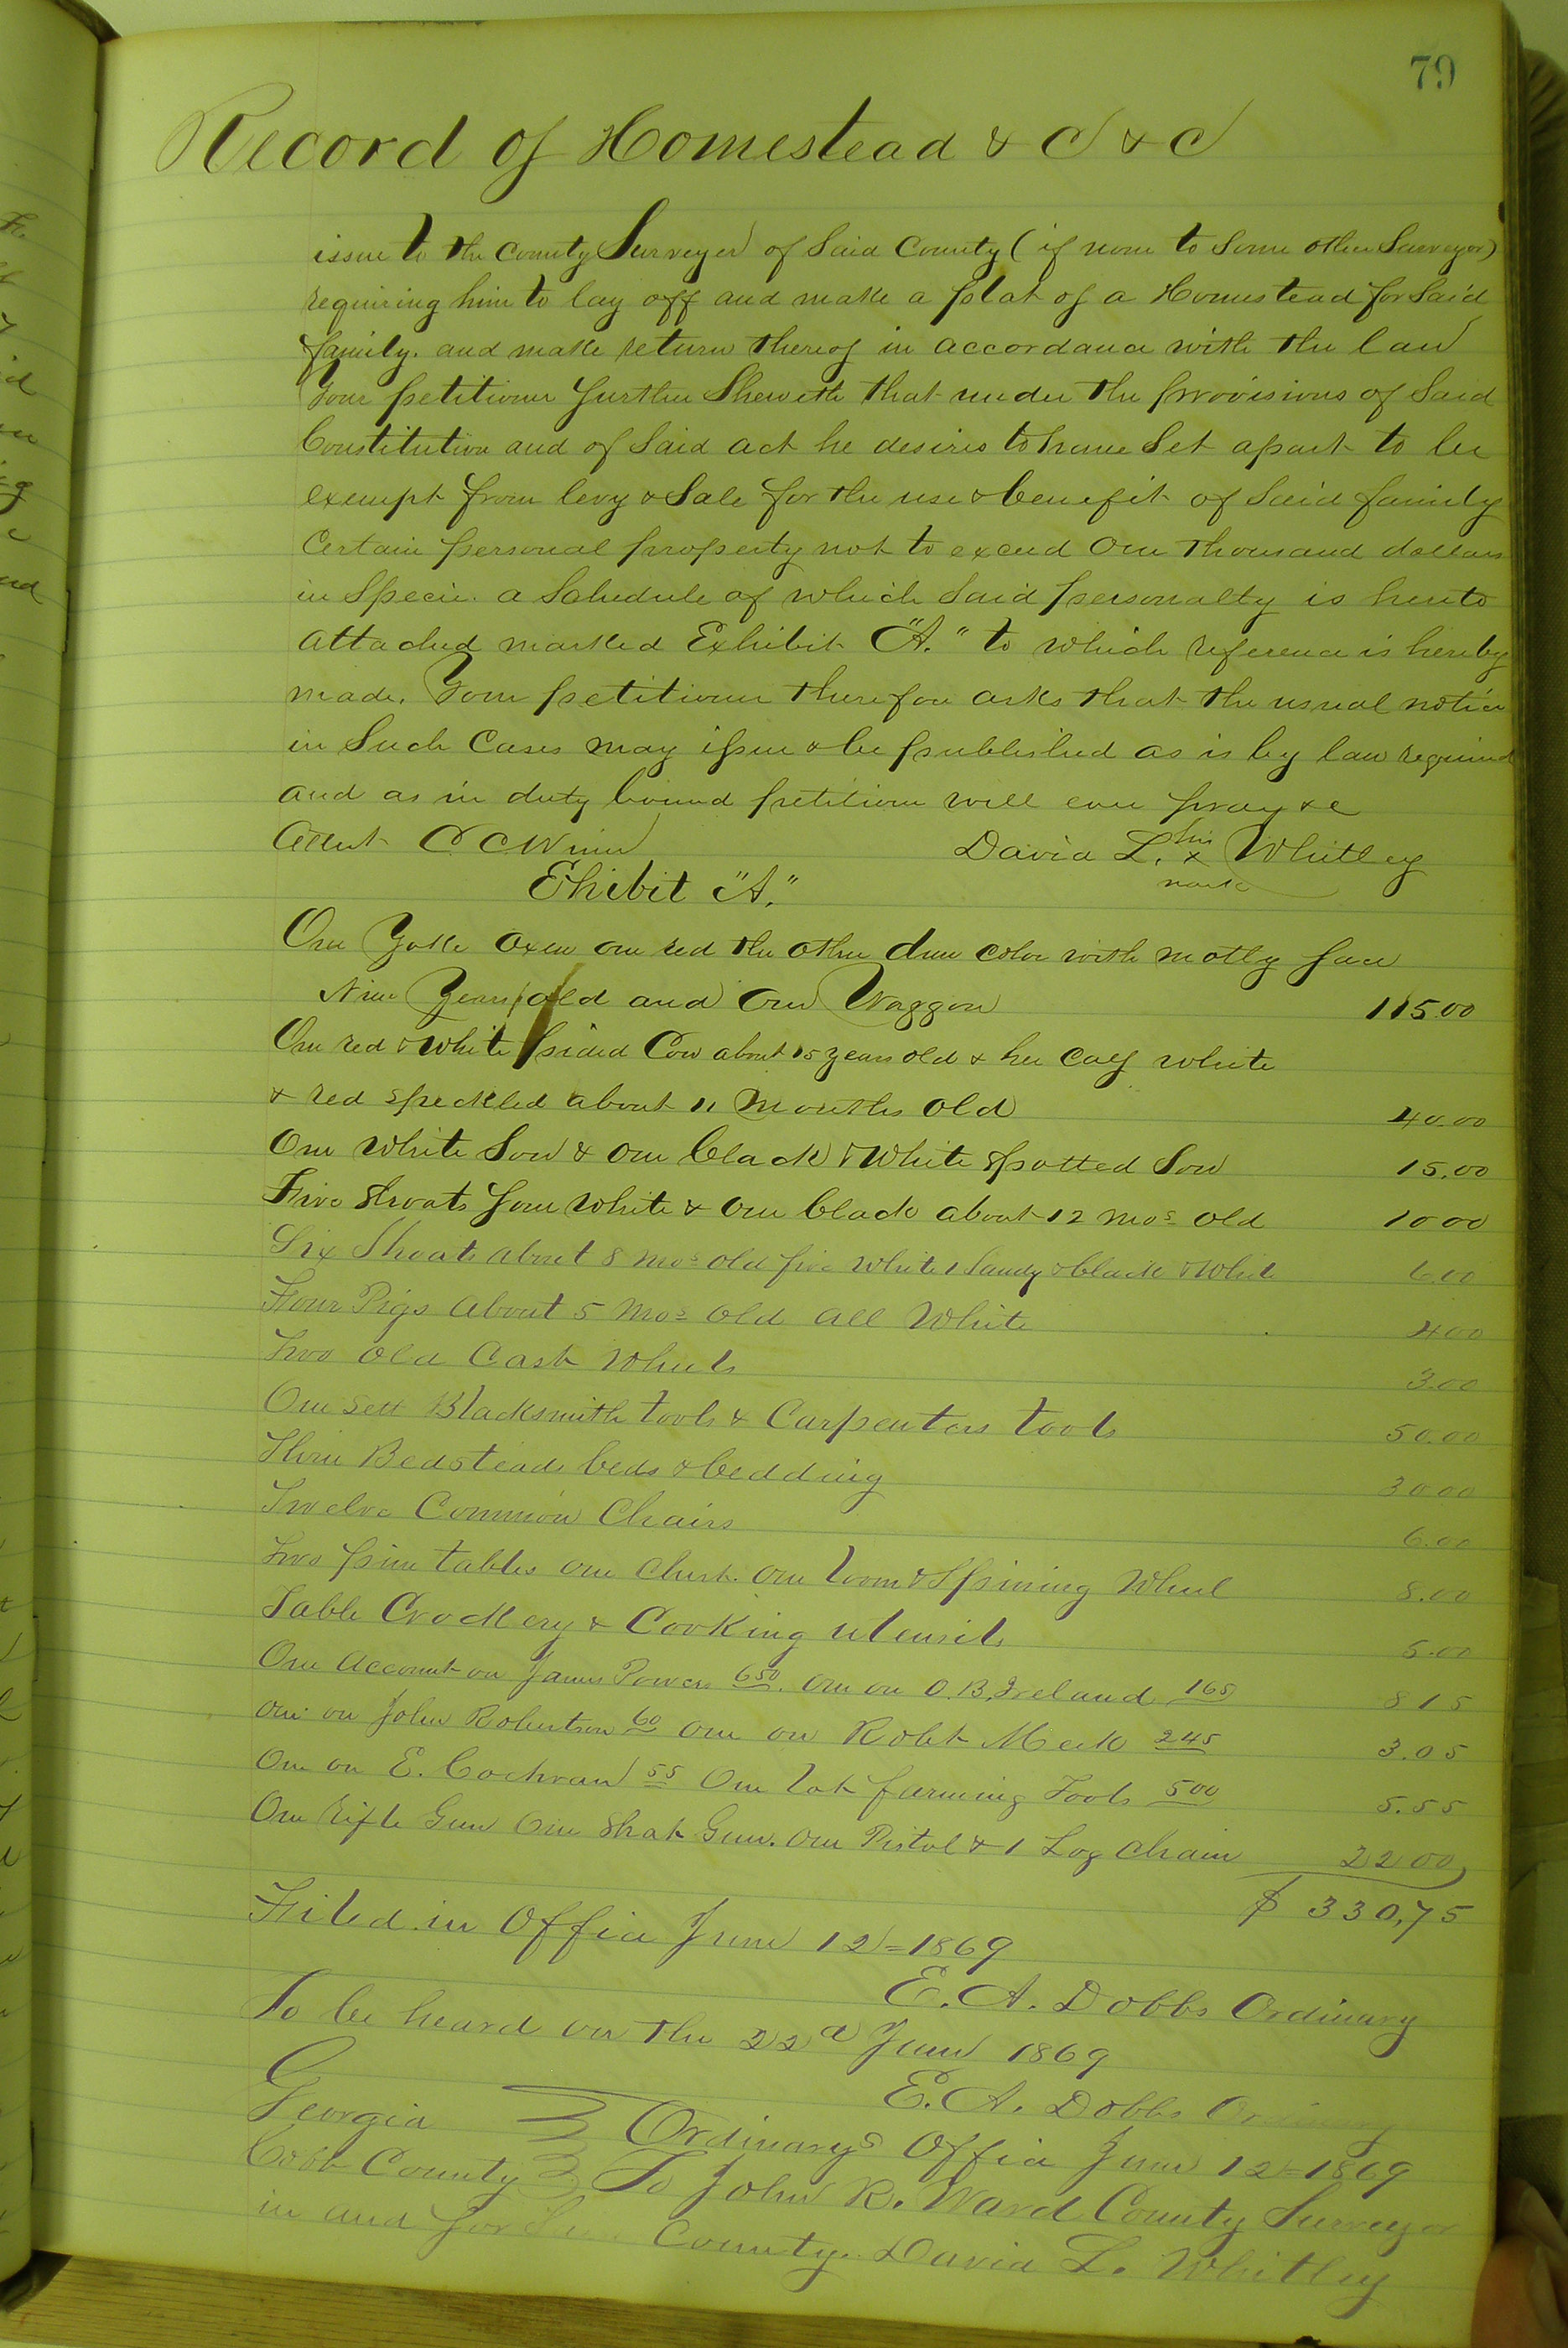 79
Record of Homestead & C & C
issue to the County Surveyor of Said County (if none to Some other Surveyor)
requiring him to lay off and make a plat of a Homestead for Said
family. and make return thereof in accordance with the law
Your petitioner further Sheweth that under the provisions of Said
Constitution and of Said act he desires to have Set apart to be
exempt from levy & Sale for the use & benefit of Said family
Certain personal property not to exceed One thousand dollars
in Specie. a Schedule of which Said personalty is hereto
attached marked Exhibit "A." to which reference is hereby
made. Your petitioner therefore asks that the usual notice
in Such Cases may issue & be published as is by law required
and as in duty bound petitioner will ever pray &c
Attest C C Winn David L. his x mark Whitley
Ehibit "A."
One Yoke Oxen one red the other dun color with motly face
Nine Years old and One Waggon 115.00
One red & White sided Cow about 15 years old & her calf white
& red Speckled about 11 Months old 40.00
One White Sow & one black & White Spotted Sow 15.00
Five Shoats four White & one black about 12 mos old 10 00
Six Shoats about 8 mos old five White 1 Sandy & black & White 6.00
Four Pigs about 5 Mos old all White 4 00
Two old Cast Wheels 3.00
One Sett Blacksmith tools & Carpenters tools 50.00
Three Bedsteads beds & bedding 30 00
Twelve Common Chairs 6.00
Two pine tables one Chest. one loom & Spining Wheel 8.00
Table Crockery & Cooking utensils 5.00
One Account on James Powers 6 50. one on O. B. Ireland 1 65 8 15
one on John Robertson 60 one on Robt Meek 2 45 3.05
One on E. Cochran 55 One lot farming Tools 5 00 5.55
One Rifle Gun One Shot Gun. one Pistol & 1 Log Chain 22 00
$ 330,75
Filed in Office June 12 = 1869
E. A. Dobbs Ordinary
To be heard on the 22d June 1869
E. A. Dobbs Ordinary
Georgia } Ordinarys Office June 12 = 1869
Cobb County } To John R. Ward County Surveyor
in and for County. David L. Whitley